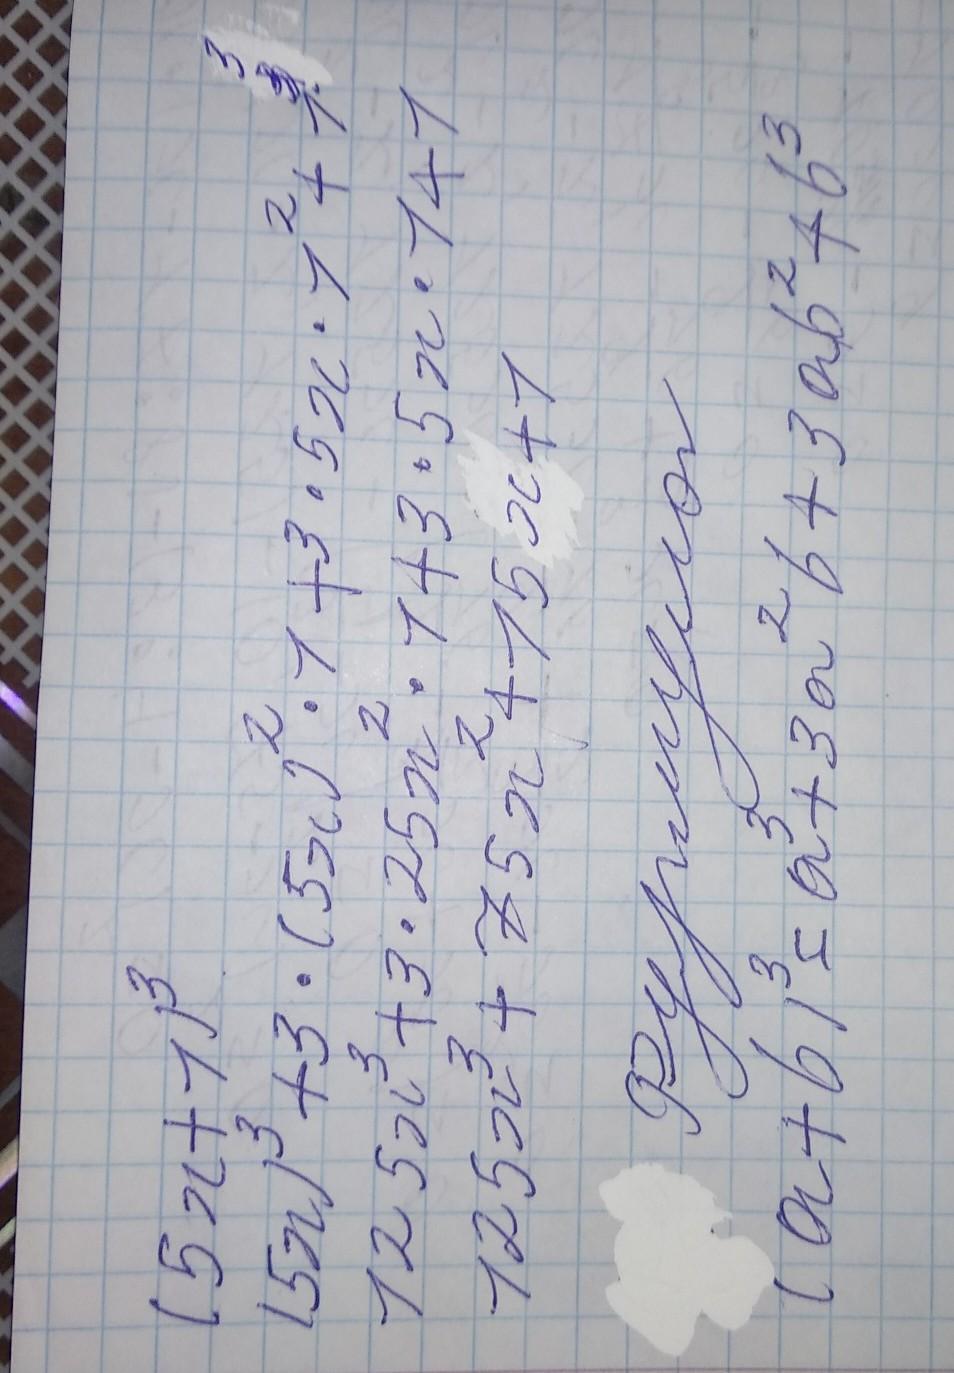 (5x+1)³
(5x)³+3·(5x)²·1+3·5x·1²+1³
125x³+3·25x²·1+3·5x·1+1
125x³+75x²+15x+1
(a+b)³=a³+3a²b+3ab²+b³